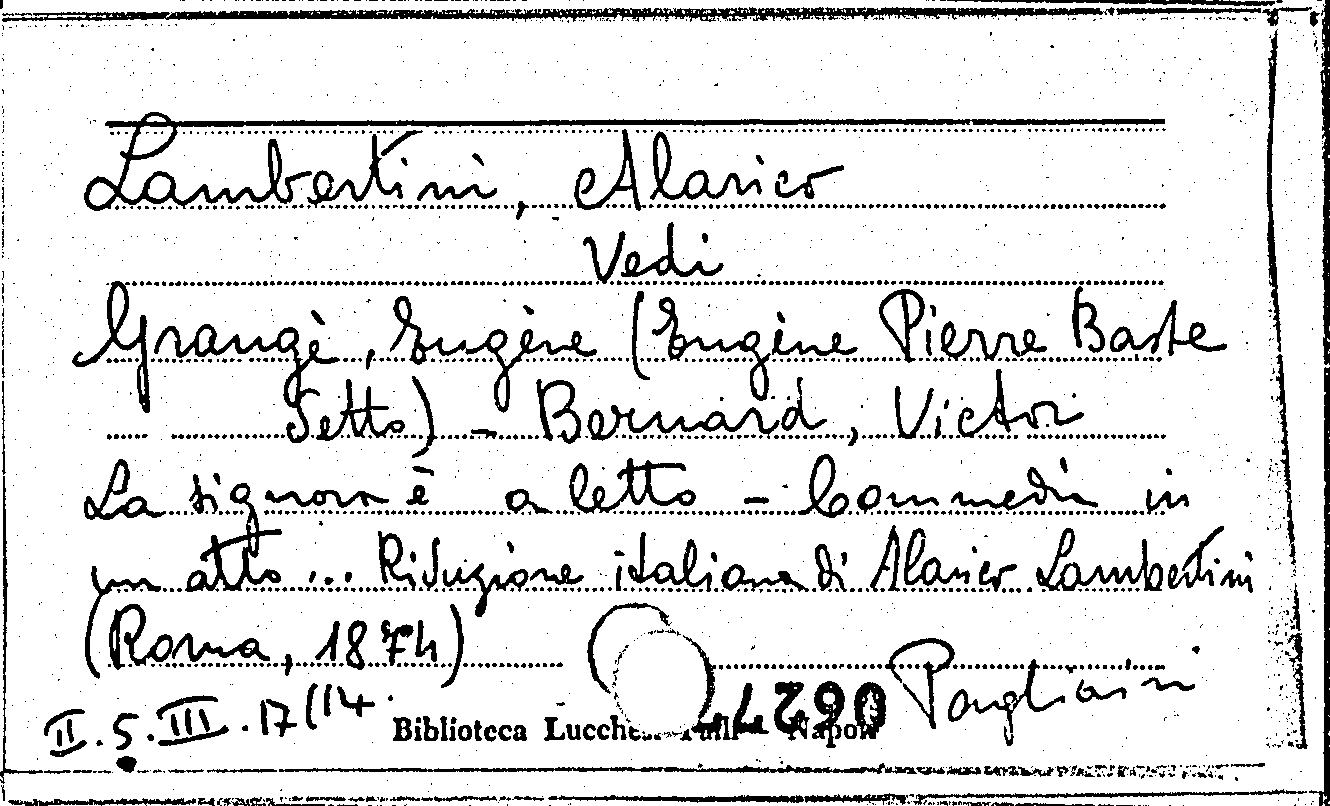 Lambertini, Alarico
Vedi
Grangè, Eugène (Eugène Pierre Baste
detto) - Bernard, Victor
La signora è a letto - Commedia in
un atto ... Riduzione italiana di Alarico Lambertini
(Roma, 1874)
II.5.III.17(14. Biblioteca Lucchesi Palli - Napoli
Pagliaini